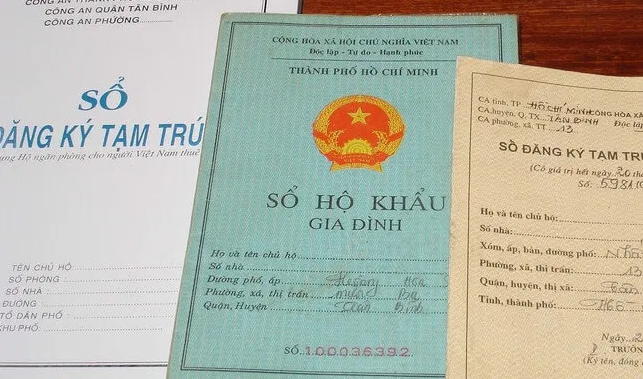 CÔNG AN QUẬN TÂN BÌNH
CÔNG AN PHƯỜNG
SỔ
ĐĂNG KÝ TẠM TRÚ
Hộ ngăn phòng cho người Việt Nam thuê
TÊN CHỦ HỘ
SỐ PHÒNG
SỐ NHÀ
ĐƯỜNG
TỔ DÂN PHỐ
KHU PHỐ
CỘNG HÒA XÃ HỘI CHỦ NGHĨA VIỆT NAM
Độc lập - Tự do - Hạnh phúc
THÀNH PHỐ HỒ CHÍ MINH
SỔ HỘ KHẨU
GIA ĐÌNH
Họ và tên chủ hộ
Số nhà
Đường phố, ấp
Phường, xã, thị trấn
Quận, Huyện
SỐ 100036392
CA tỉnh, TP HỒ CHÍ MINH CỘNG HÒA X
CA huyện, Q, TX TÂN BÌNH Độc lập
CA phường, xã, TT 13
SỔ ĐĂNG KÝ TẠM TR
(Có giá trị hết ngày 20 th
Số: 5981
Họ và tên chủ hộ:
Số nhà:
Xóm, ấp, bản, đường phố:
Phường, xã, thị trấn: 13
Quận, huyện, thị xã: Tân
Tỉnh, thành phố:
Ngày 2
TRƯỞN
(Ký tên, đóng